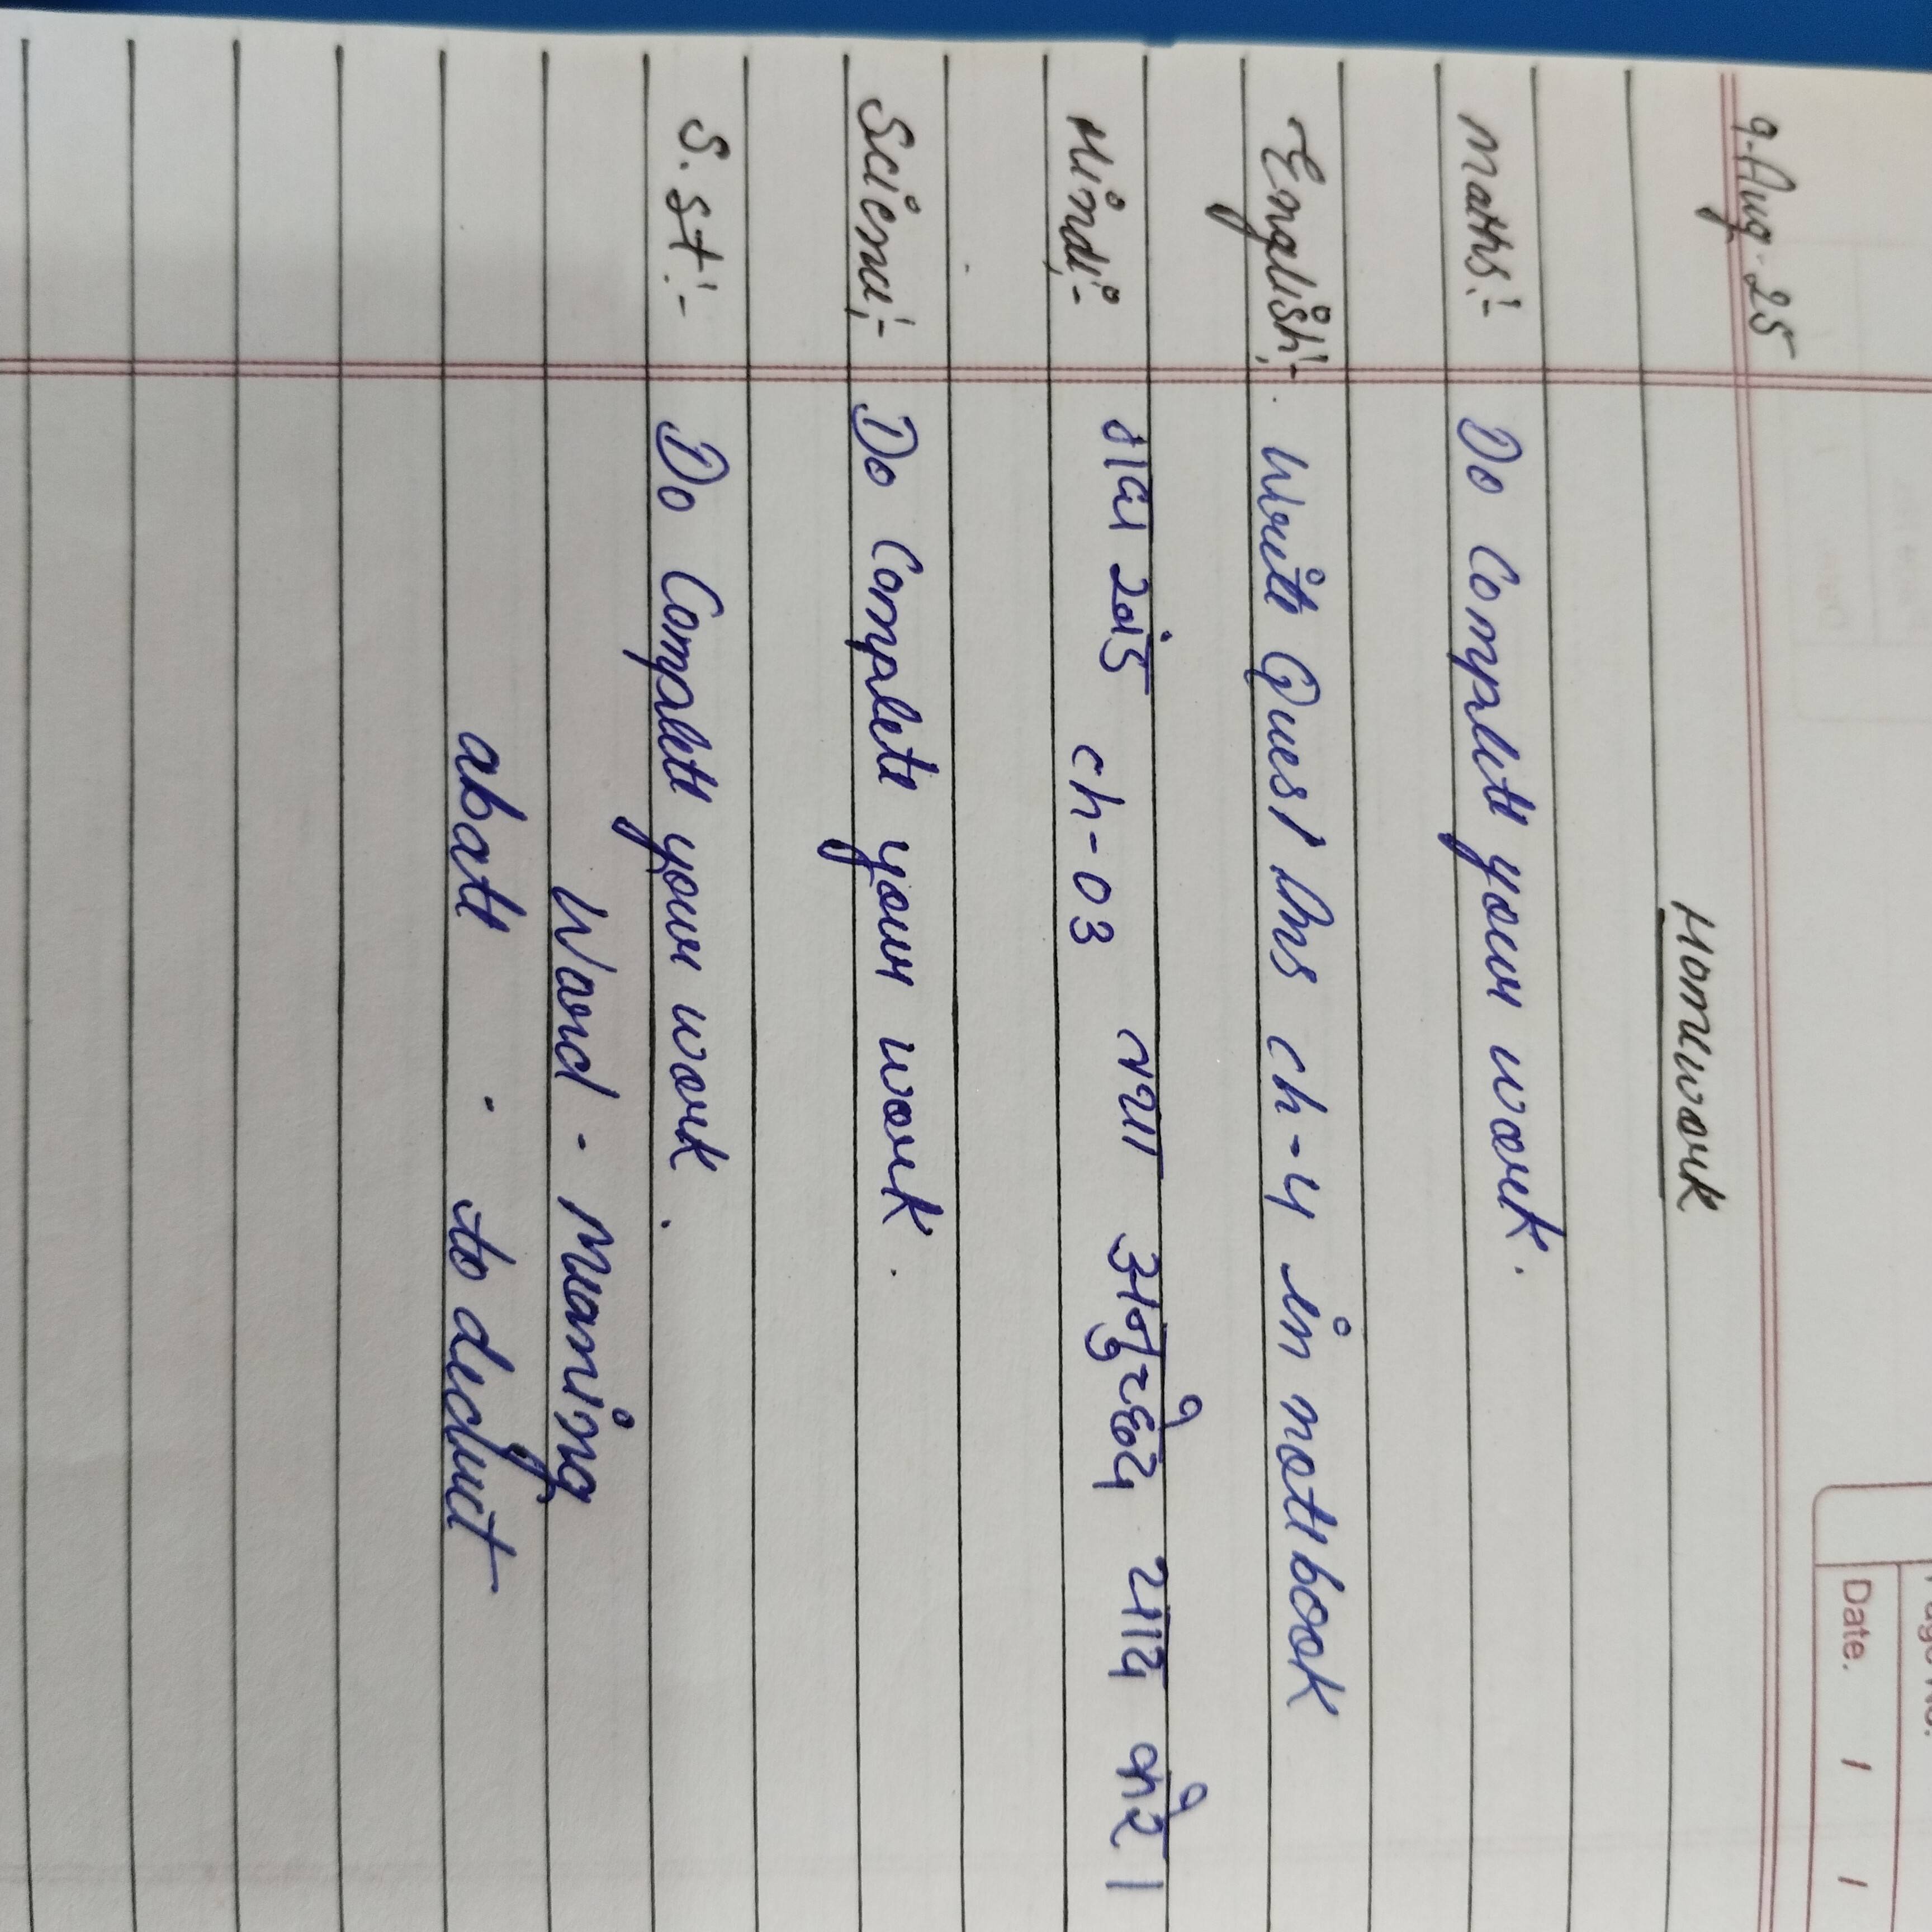 Date. / /
9. Aug. 25
Homework
Maths:- Do Complete your work.
English:- Write Ques/Ans ch-4 in notebook
Hindi:- ch-03 तथा अनुच्छेद याद करे।
Science:- Do Complete your work.
S.st:- Do Complete your work.
Word - Meaning
abate - to deduct